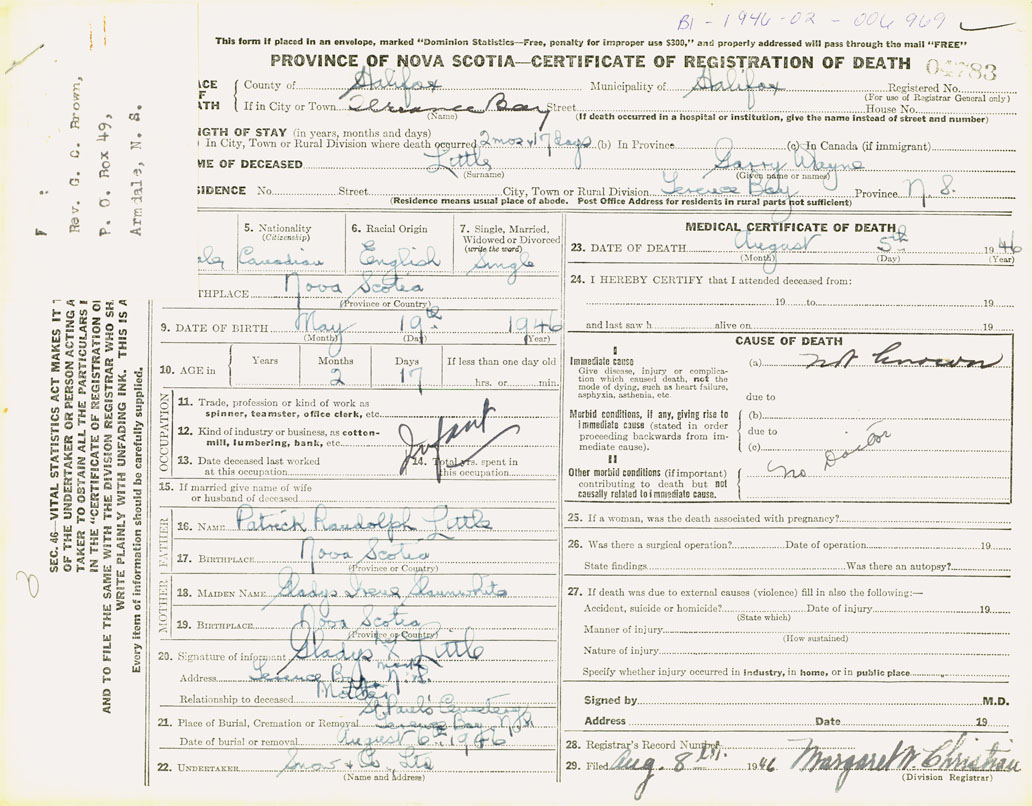 BI - 1946-02 - 006969
This form if placed in an envelope, marked "Dominion Statistics—Free, penalty for improper use $300," and properly addressed will pass through the mail "FREE"
PROVINCE OF NOVA SCOTIA—CERTIFICATE OF REGISTRATION OF DEATH 04783
ACE County of Halifax Municipality of Halifax Registered No.
F (For use of Registrar General only)
ATH If in City or Town Terrance Bay Street House No.
(Name) (If death occurred in a hospital or institution, give the name instead of street and number)
NGTH OF STAY (in years, months and days)
) In City, Town or Rural Division where death occurred 2 mos + 17 days (b) In Province (c) In Canada (if immigrant)
ME OF DECEASED Little Garry Wayne
(Surname) (Given name or names)
SIDENCE No. Street City, Town or Rural Division Terence Bay Province N. S.
(Residence means usual place of abode. Post Office Address for residents in rural parts not sufficient)
F :
Rev. G. C. Brown,
P. O. Box 49,
Armdale, N. S.
SEC. 46—VITAL STATISTICS ACT MAKES IT
OF THE UNDERTAKER OR PERSON ACTING A
TAKER TO OBTAIN ALL THE PARTICULARS I
IN THE "CERTIFICATE OF REGISTRATION O
AND TO FILE THE SAME WITH THE DIVISION REGISTRAR WHO SH
WRITE PLAINLY WITH UNFADING INK. THIS IS A
Every item of information should be carefully supplied.
3
5. Nationality 6. Racial Origin 7. Single, Married,
(Citizenship) Widowed or Divorced
(write the word)
ale Canadian English Single
THPLACE Nova Scotia
(Province or Country)
9. DATE OF BIRTH May 19th 1946
(Month) (Day) (Year)
Years Months Days If less than one day old
10. AGE in 2 17 hrs. or min.
OCCUPATION
11. Trade, profession or kind of work as
spinner, teamster, office clerk, etc.
12. Kind of industry or business, as cotton-
mill, lumbering, bank, etc.
Infant
13. Date deceased last worked 14. Total yrs. spent in
at this occupation this occupation
15. If married give name of wife
or husband of deceased
FATHER
16. NAME Patrick Randolph Little
17. BIRTHPLACE Nova Scotia
(Province or Country)
MOTHER
18. MAIDEN NAME Gladys Irene Slaunwhite
19. BIRTHPLACE Nova Scotia
(Province or Country)
20. Signature of informant Gladys X Little
mark
Address Terence Bay N. S.
Relationship to deceased Mother
St Paul's Cemetery
21. Place of Burial, Cremation or Removal Terence Bay N.S.
Date of burial or removal August 6th 1946
22. UNDERTAKER Snow & Co. Ltd
(Name and Address)
MEDICAL CERTIFICATE OF DEATH
23. DATE OF DEATH August 5th 1946
(Month) (Day) (Year)
24. I HEREBY CERTIFY that I attended deceased from:
19 to 19
and last saw h alive on 19
CAUSE OF DEATH
I
Immediate cause (a) not known
Give disease, injury or complica-
tion which caused death, not the
mode of dying, such as heart failure,
asphyxia, asthenia, etc. due to
Morbid conditions, if any, giving rise to (b)
immediate cause (stated in order due to
proceeding backwards from im-
mediate cause). (c)
II
No Doctor
Other morbid conditions (if important)
contributing to death but not
causally related to immediate cause.
25. If a woman, was the death associated with pregnancy?
26. Was there a surgical operation? Date of operation 19
State findings Was there an autopsy?
27. If death was due to external causes (violence) fill in also the following:—
Accident, suicide or homicide? Date of injury 19
(State which)
Manner of injury
(How sustained)
Nature of injury
Specify whether injury occurred in industry, in home, or in public place
Signed by M.D.
Address Date 19
28. Registrar's Record Number
29. Filed Aug. 8th 1946 Margaret W Christian
(Division Registrar)